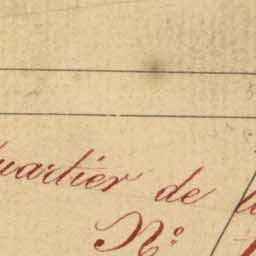 uartier de l
N°